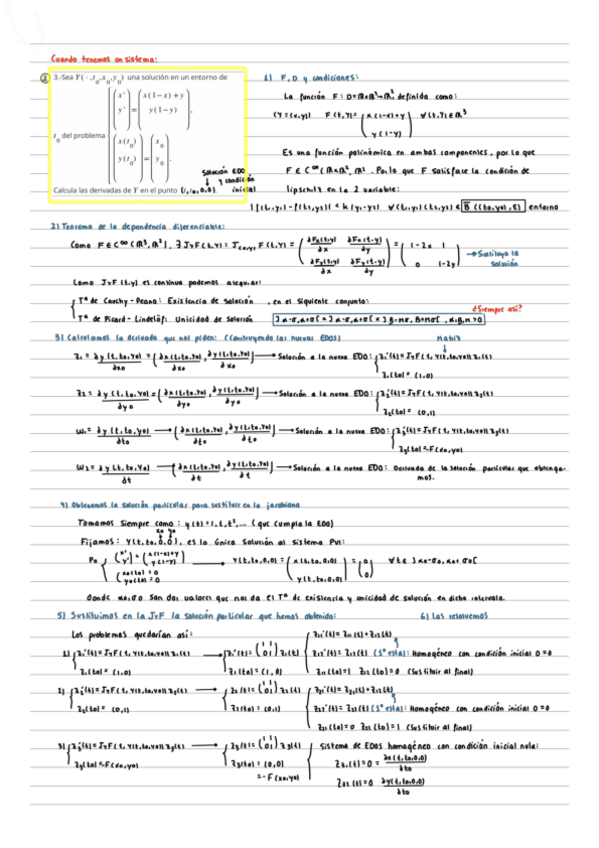 Cuando tenemos un sistema:
② 3.-Sea Y(·,t₀,x₀,y₀) una solución en un entorno de
(x' y') = (x(1−x)+y y(1−y)),
t₀ del problema
(x(t₀) y(t₀)) = (x₀ y₀).
Solución EDO y condición inicial
Calcula las derivadas de Y en el punto (t,t₀,0,0).
1) F, D y condiciones:
La función F: D=R×R²→R², definida como:
(Y=(x,y)) F(t,Y)= (x(1-x)+y y(1-y)) ∀(t,Y)∈R³
Es una función polinómica en ambas componentes, por lo que
F ∈ C^∞(R×R², R². Por lo que F satisface la condición de
lipschitz en la 2 variable:
|f(t,y₁)-f(t,y₂)| ≤ k|y₁-y₂| ∀(t,y₁)(t,y₂) ∈ B((t₀,y₀),ε) entorno
2) Teorema de la dependencia diferenciable:
Como F ∈ C^∞(R³,R²), ∃ JyF(t,Y)=J(x,y)F(t,Y)= (∂F₁(t,y)/∂x ∂F₁(t,y)/∂y ∂F₂(t,y)/∂x ∂F₂(t,y)/∂y) = (1-2x 1 0 1-2y) → Sustituyo la solución
Como JyF(t,y) es continua podemos asegurar:
Tª de Cauchy-Peano: Existencia de solución, en el siguiente conjunto:
Tª de Picard-Lindelöf: Unicidad de Solución
¿Siempre así?
3) Calculamos la derivada que nos piden: (Construyendo las nuevas EDOS)
Matriz
Z₁ = ∂y(t,t₀,y₀)/∂x₀ = (∂x(t,t₀,y₀)/∂x₀, ∂y(t,t₀,y₀)/∂x₀) → Solución a la nueva EDO: Z₁'(t)=JyF(t,Y(t,t₀,y₀))Z₁(t)
Z₁(t₀)=(1,0)
Z₂ = ∂y(t,t₀,y₀)/∂y₀ = (∂x(t,t₀,y₀)/∂y₀, ∂y(t,t₀,y₀)/∂y₀) → Solución a la nueva EDO: Z₂'(t)=JyF(t,Y(t,t₀,y₀))Z₂(t)
Z₂(t₀)=(0,1)
W₁ = ∂y(t,t₀,y₀)/∂t₀ → (∂x(t,t₀,y₀)/∂t₀, ∂y(t,t₀,y₀)/∂t₀) → Solución a la nueva EDO: Z₃'(t)=JyF(t,Y(t,t₀,y₀))Z₃(t)
Z₃(t₀)=-F(x₀,y₀)
W₂ = ∂y(t,t₀,y₀)/∂t → (∂x(t,t₀,y₀)/∂t, ∂y(t,t₀,y₀)/∂t) → Solución a la nueva EDO: Derivada de la solución particular que obtengamos.
4) Obtenemos la solución particular para sustituir en la jacobiana
Tomamos siempre como: y(t)=1,t,t²,... (que cumpla la EDO)
x₀ y₀
Fijamos: Y(t,t₀,0,0), es la única solución al sistema PVI:
P₀ (x' y') = (x(1-x)+y y(1-y)) x(t₀)=0 y(t₀)=0 → Y(t,t₀,0,0) = (x(t,t₀,0,0) y(t,t₀,0,0)) = (0 0) ∀t∈]x₀-σ₀,x₀+σ₀[
donde x₀,σ₀ son dos valores que nos da el Tª de existencia y unicidad de solución en dicho intervalo.
5) Sustituimos en la JyF la solución particular que hemos obtenido:
6) Las resolvemos
Los problemas quedarían así:
1) Z₁'(t)=JyF(t,Y(t,t₀,y₀))Z₁(t) → Z₁'(t)=(1 1 0 1)Z₁(t) Z₁₁'(t)=Z₁₁(t)+Z₁₂(t)
Z₁₂'(t)=Z₁₂(t) (1º esta): Homogéneo con condición inicial 0=0
Z₁(t₀)=(1,0) Z₁(t₀)=(1,0) Z₁₁(t₀)=1 Z₁₂(t₀)=0 (Sustituir al final)
2) Z₂'(t)=JyF(t,Y(t,t₀,y₀))Z₂(t) → Z₂'(t)=(1 1 0 1)Z₂(t) Z₂₁'(t)=Z₂₁(t)+Z₂₂(t)
Z₂₂'(t)=Z₂₂(t) (1º esta): Homogéneo con condición inicial 0=0
Z₂(t₀)=(0,1) Z₂(t₀)=(0,1) Z₂₁(t₀)=0 Z₂₂(t₀)=1 (Sustituir al final)
3) Z₃'(t)=JyF(t,Y(t,t₀,y₀))Z₃(t) → Z₃'(t)=(1 1 0 1)Z₃(t) Sistema de EDOS homogéneo con condición inicial nula:
Z₃(t₀)=-F(x₀,y₀) Z₃(t₀)=(0,0) =-F(x₀,y₀)
Z₃₁(t₀)=0= ∂x(t,t₀,0,0)/∂t₀
Z₃₂(t₀)=0 ∂y(t,t₀,0,0)/∂t₀